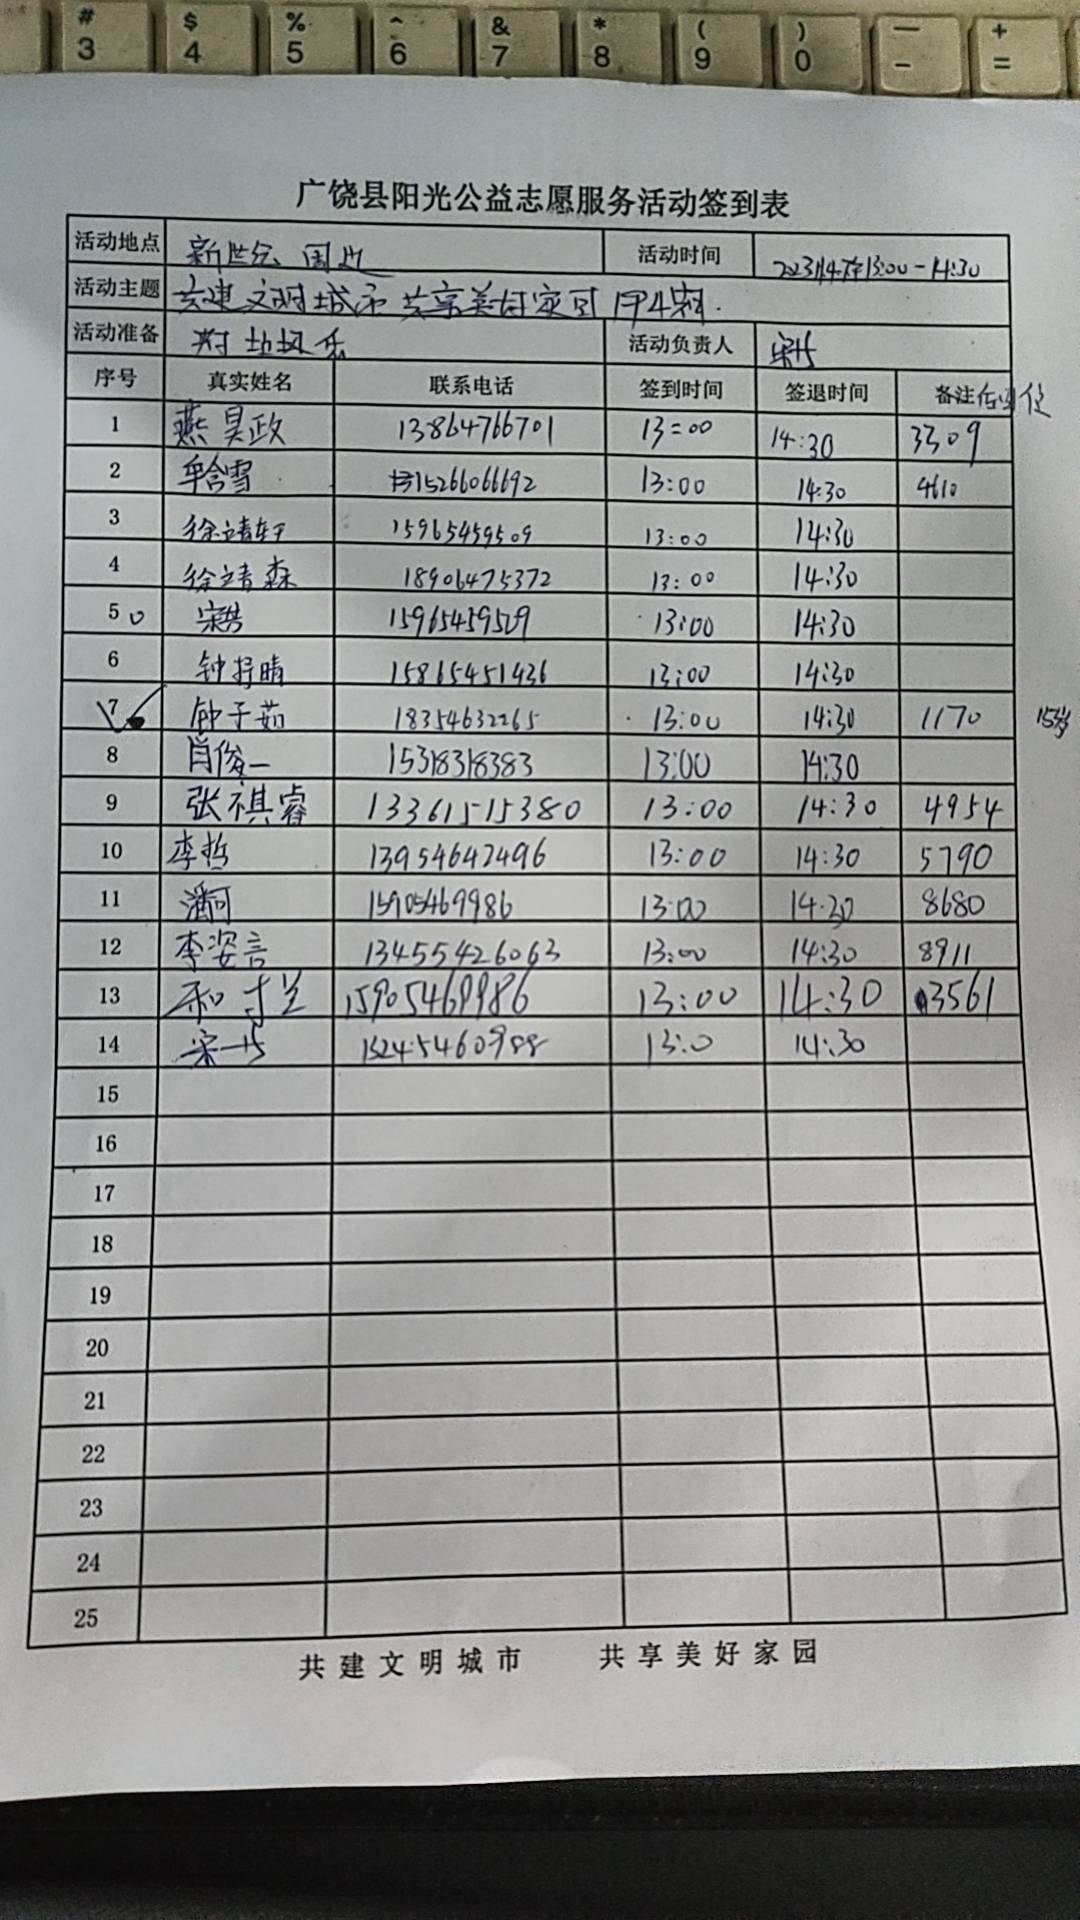 # $ % ^ & * ( ) — +
3 4 5 6 7 8 9 0 - =
广饶县阳光公益志愿服务活动签到表
活动地点 新世纪 周边 活动时间 13:00-14:30
活动主题 共建文明城市 共享美好家园
活动准备 活动负责人
序号 真实姓名 联系电话 签到时间 签退时间 备注
1 燕昊政 13864766701 13:00 14:30 3309
2 牟含雪 15266066692 13:00 14:30 4610
3 徐靖轩 15965459509 13:00 14:30
4 徐靖森 18906475372 13:00 14:30
5 15965459509 13:00 14:30
6 钟 晴 15865451436 13:00 14:30
7 钟子茹 18354632265 13:00 14:30 1170 15岁
8 肖俊一 15318318383 13:00 14:30
9 张祺睿 13361515380 13:00 14:30 4954
10 李哲 13954642496 13:00 14:30 5790
11 潘可 15905469986 13:00 14:30 8680
12 李姿言 13455426063 13:00 14:30 8911
13 15905469986 13:00 14:30 3561
14 15245460988 13:0 14:30
15
16
17
18
19
20
21
22
23
24
25
共建文明城市 共享美好家园